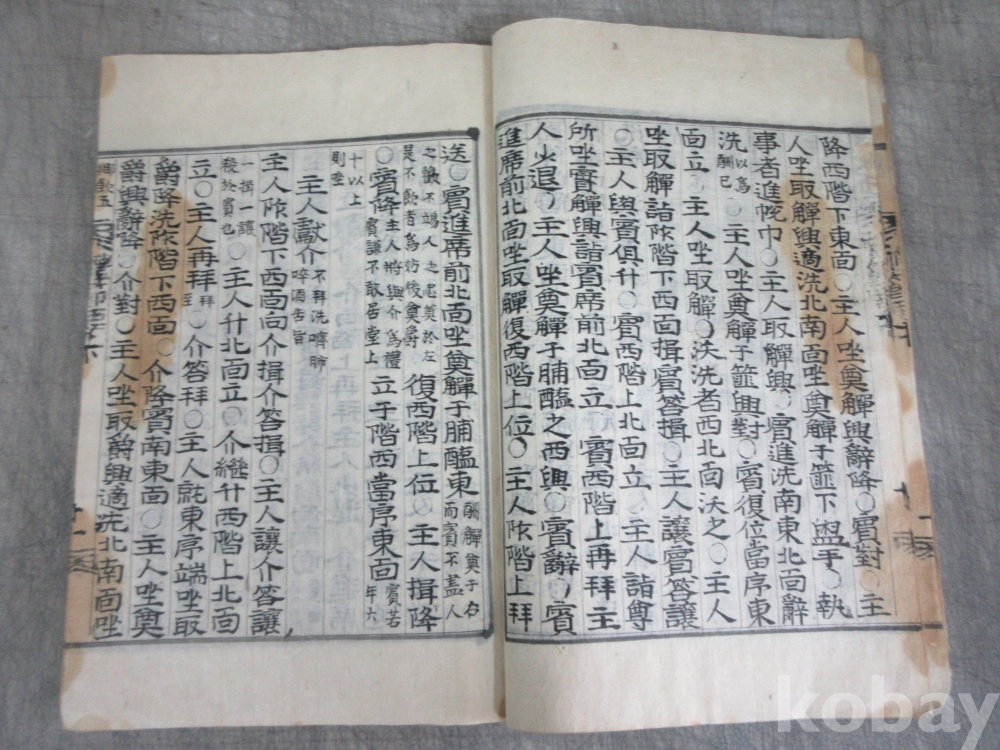 降西階下東面○主人坐奠觶興辭降○賓對○主
人坐取觶興適洗北南面坐奠觶于篚下盥手○執
事者進帨巾○主人取觶興○賓進洗南東北面辭
洗以爲酬已○主人坐奠觶于篚興對○賓復位當序東
面立○主人坐取觶○沃洗者西北面沃之○主人
坐取觶詣阼階下西面揖賓答揖○主人讓賓答讓
○主人與賓俱升○賓西階上北面立○主人詣尊
所坐實觶興詣賓席前北面立○賓西階上再拜主
人少退○主人坐奠觶于脯醢之西興○賓辭○賓
進席前北面坐取觶復西階上位○主人阼階上拜
送○賓進席前北面坐奠觶于脯醢東酬觶奠于右而賓不盡人
之歡不竭人之忠奠於左
是不飮者爲妨後奠爵 復西階上位○主人揖降
○賓降主人將與介爲禮
賓謙不敢居堂上 立于階西當序東面賓若年六
十以上
則坐
主人獻介不拜洗嚌肺
啐酒告旨
主人阼階下西面向介揖介答揖○主人讓介答讓
一揖一讓
殺於賓也○主人升北面立○介繼升西階上北面
立○主人再拜拜至○介答拜○主人就東序端坐取
爵降洗阼階下西面○介降賓南東面○主人坐奠
爵興辭降○介對○主人坐取爵興適洗北南面坐
十一
kobay